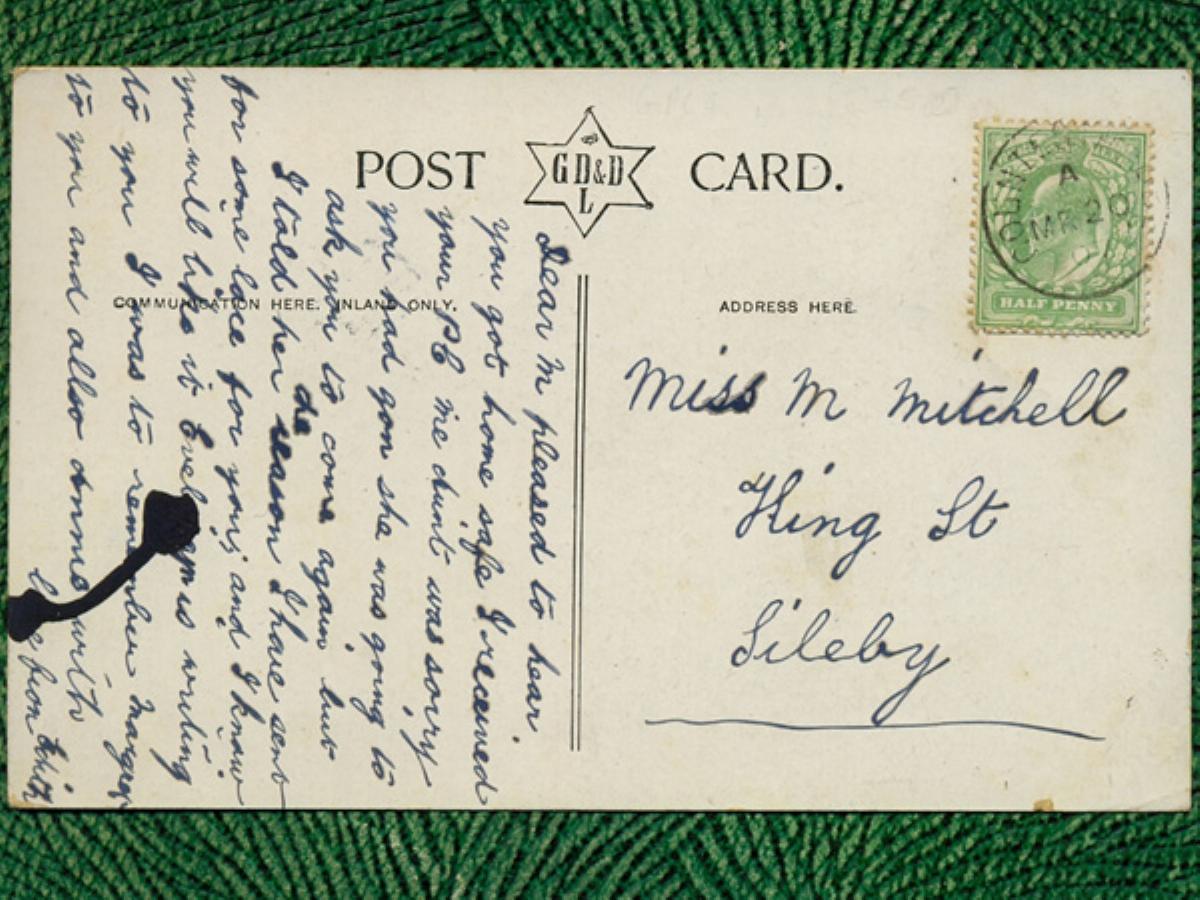 POST CARD.
GD&D
L
COMMUNICATION HERE. INLAND ONLY.
ADDRESS HERE.
A
MR 20
HALF PENNY
Miss M Mitchell
King St
Sileby
Dear M pleased to hear
you got home safe I received
your PC me aunt was sorry
you had gon she was going to
ask you to come again but
I told her de reason I have sent
for some lace for you and I know
you will like it is writing
to you I was to remember
to you and allso Annie with
from Edith